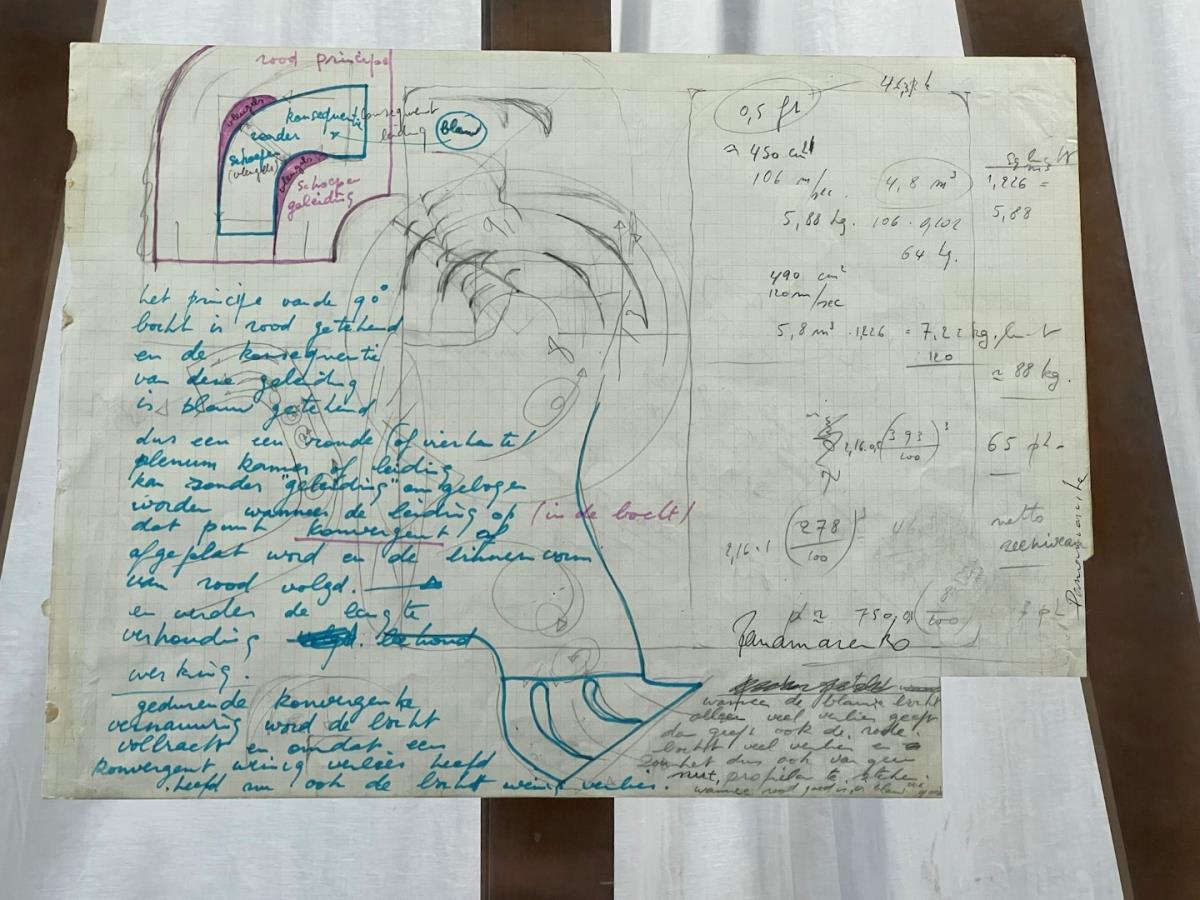 rood principe
vleugels
konsequentie
zonder
schoepen
(vleugels)
konsequent
leiding
blauw
vleugels
schoepen
geleiding
het principe van de 90°
bocht is rood getekend
en de konsequentie
van deze geleiding
is blauw getekend
dus een een ronde (of vierkante)
plenum kamer of leiding
kan zonder "geleiding" omgebogen
worden wanneer de leiding op (in de bocht)
dat punt konvergent of
afgeplat word en de binnen vorm
van rood volgd.
en verder de lengte
verhouding
werking.
gedurende konvergente
vernauwing word de bocht
volbracht en omdat een
konvergent weinig verlies heefd
heefd nu ook de bocht weinig verlies.
0,5 
450 cm²
106 m/sec
4,8 m³
5,88 kg. 106 . 0,102
64 kg.
1,226 =
5,88
490 cm²
120 m/sec
5,8 m³ . 1226 = 7,22 kg,
120
≈ 88 kg.
2,16.0,5 (393/100)³ 65 pk
2,16.1 (278/100)³
netto
zeeniveau
Panamarenko
Panamarenko
wanneer de blauwe bocht
alleen veel verlies geeft
dan geeft ook de rode
bocht veel verlies en
zou het dus ook van geen
nut, profielen te steken.